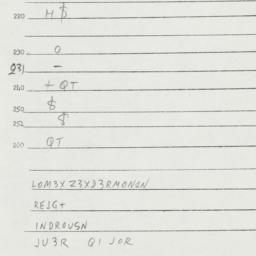 220 H $
230 O
231 -
240 + QT
250 $
252 $
260 QT
LOM3XZ3XD3RMONON
REJG+
INDROUSN
JU3R QI JOR